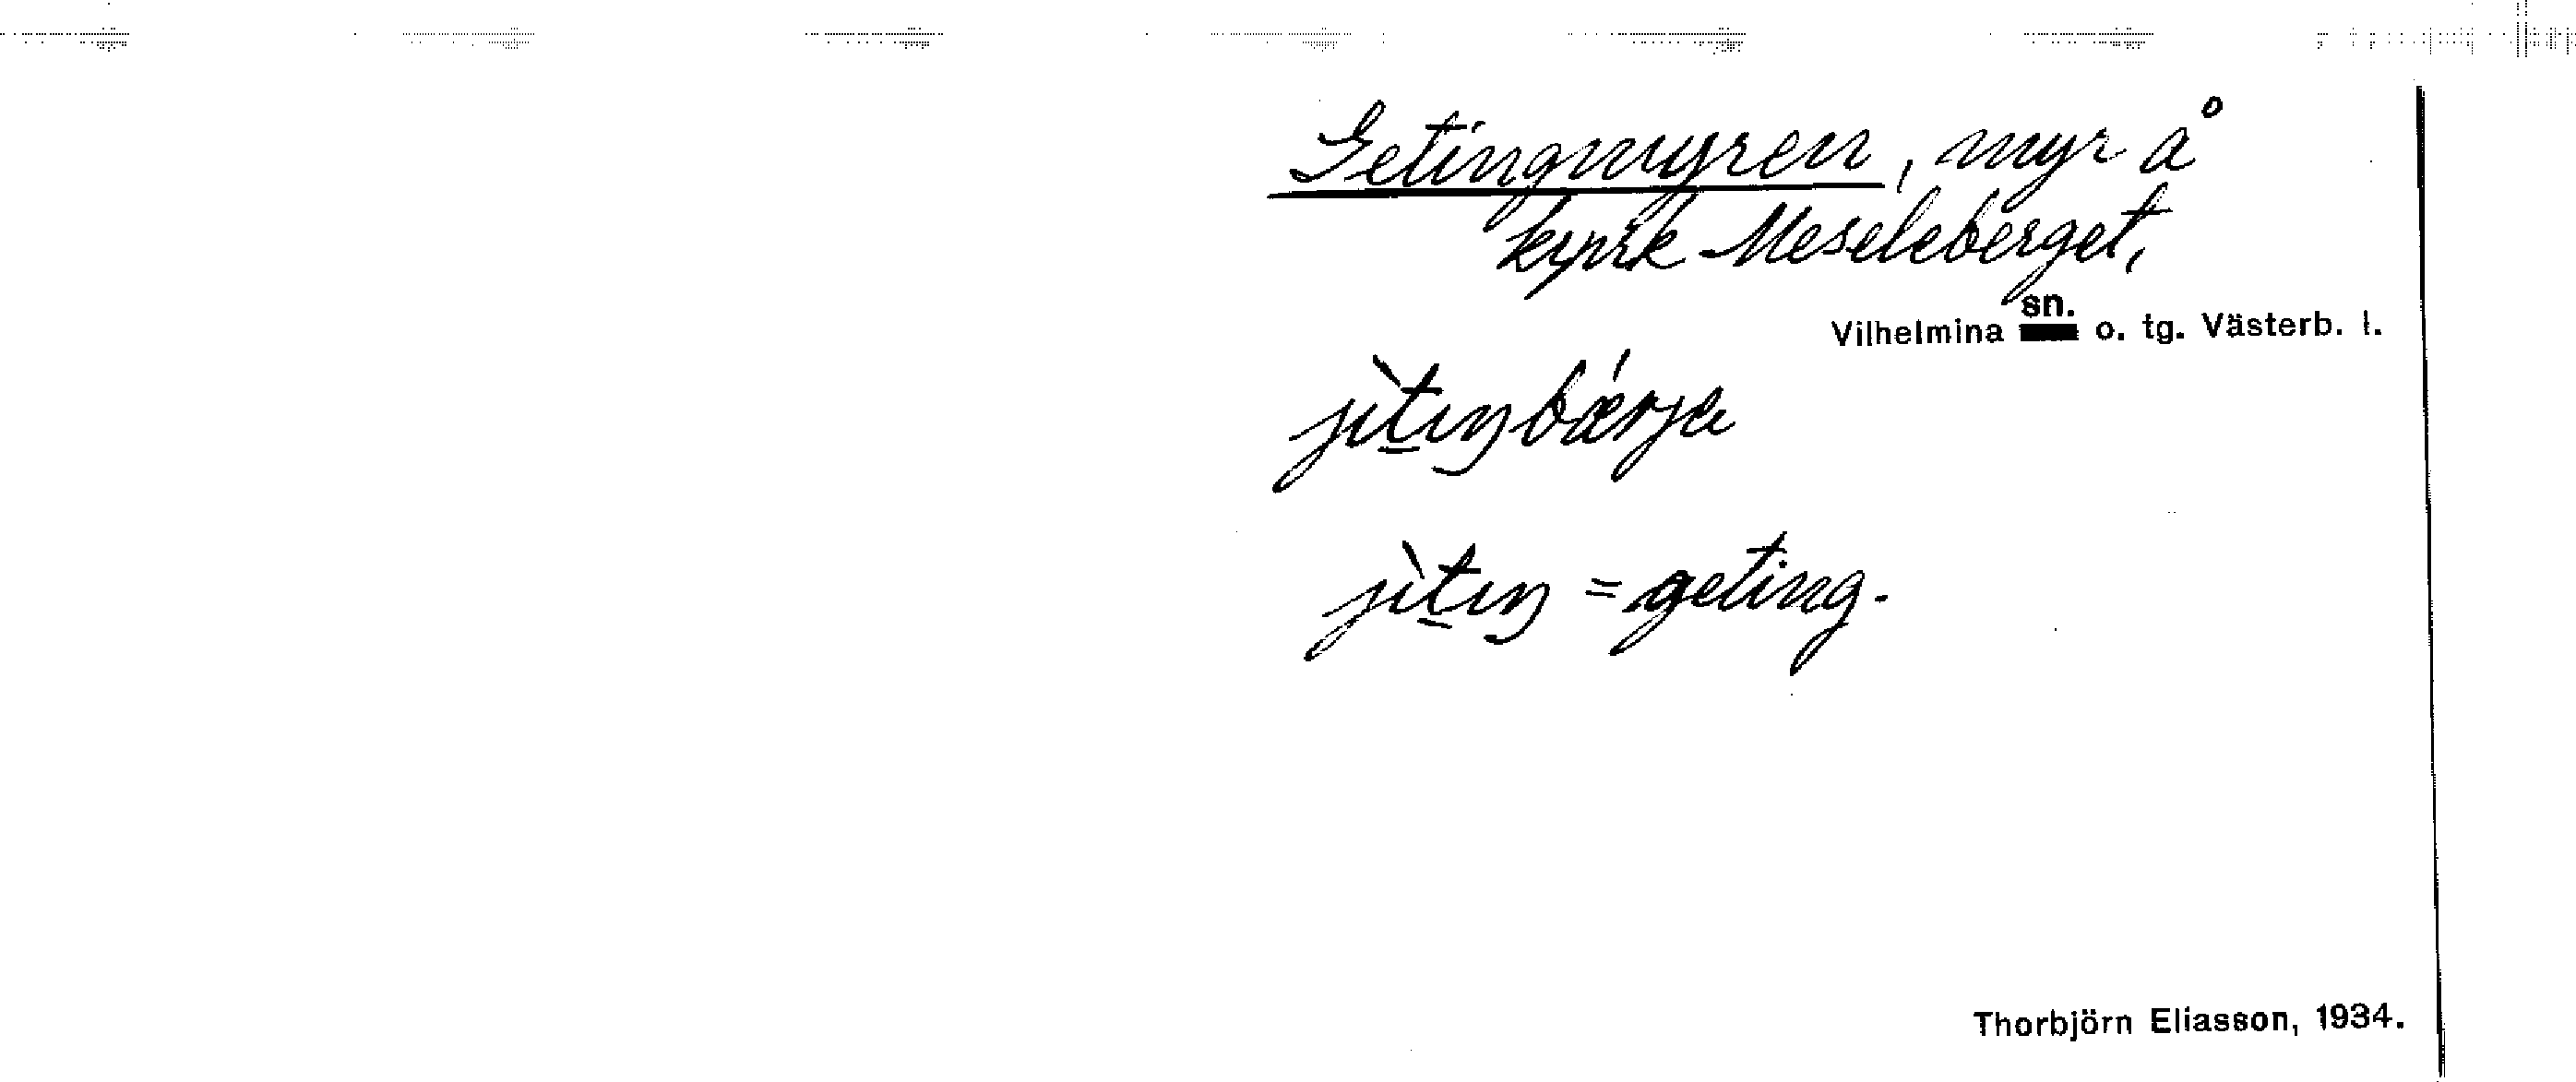 Getingmyren, myr å
kyrk Meseleberget,
Vilhelmina sn. o. tg. Västerb. l.
jìtıŋbǽrja
jìtıŋ = geting.
Thorbjörn Eliasson, 1934.